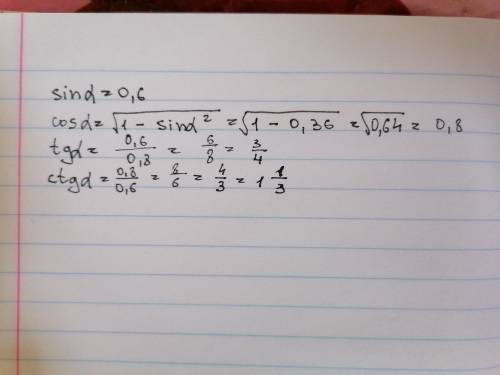 sinα = 0,6
cosα = √(1 - sinα²) = √(1 - 0,36) = √0,64 = 0,8
tgα = 0,6/0,8 = 6/8 = 3/4
ctgα = 0,8/0,6 = 8/6 = 4/3 = 1 1/3